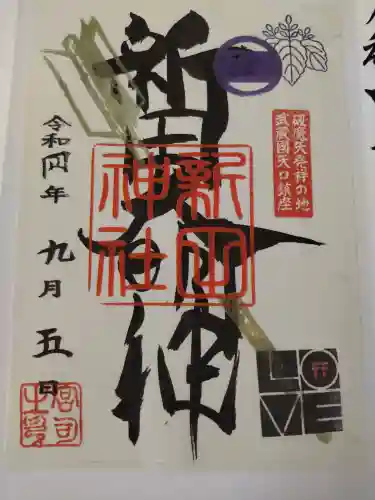 破魔矢発祥の地
武蔵國矢口鎮座
新田神社
新田
神社
令和四年 九月 五日
LO
VE